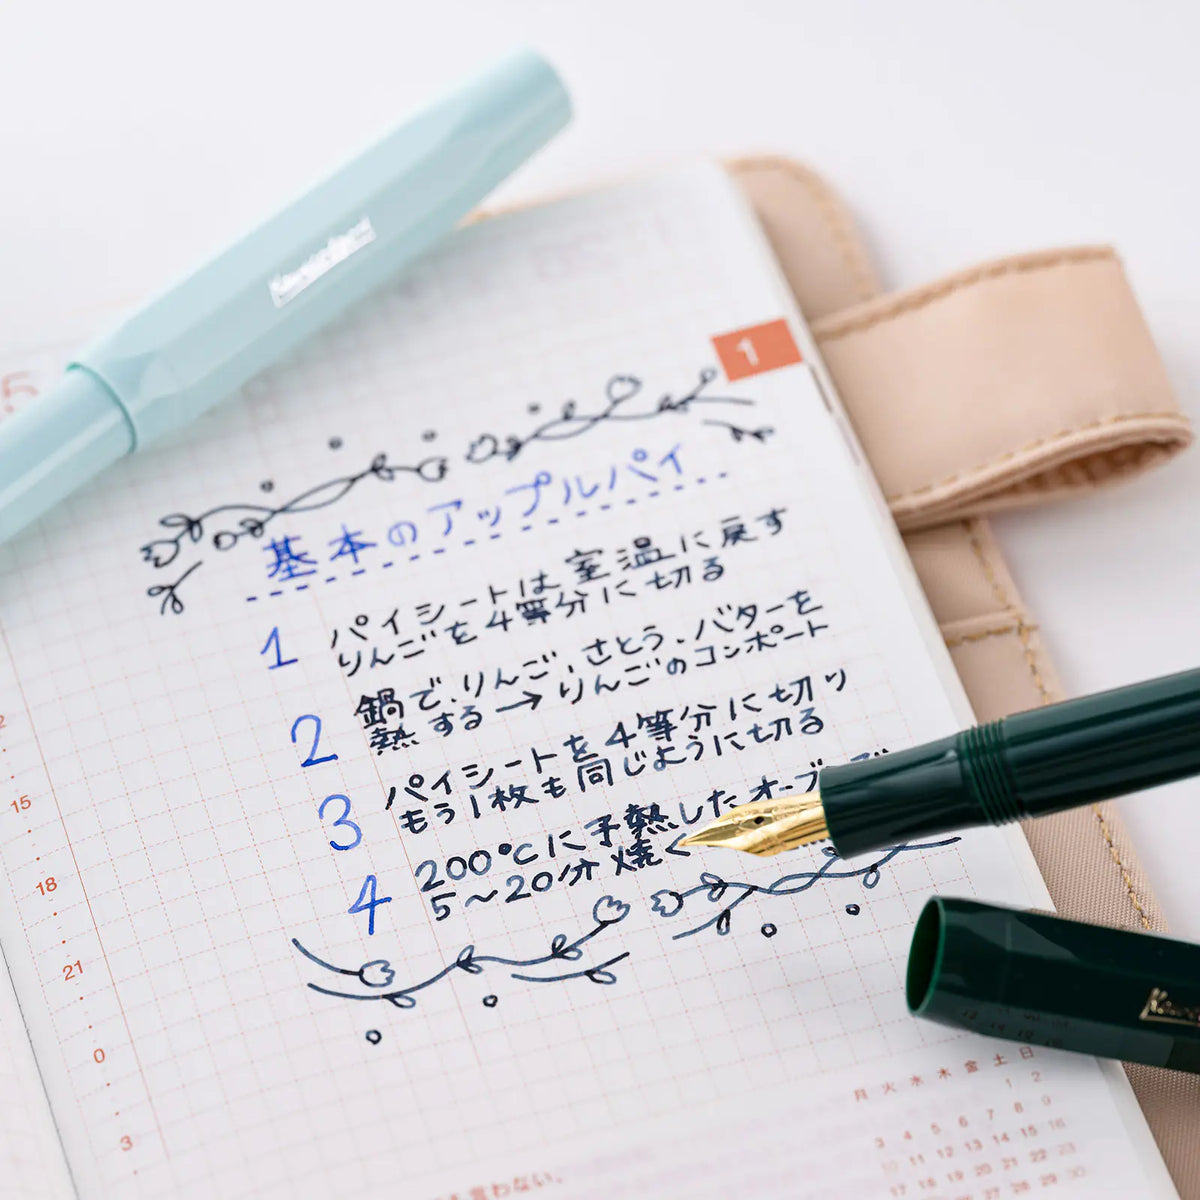 Kaweco
1
基本のアップルパイ
1 パイシートは室温に戻す
りんごを4等分に切る
2 鍋で、りんご、さとう、バターを
熱する→りんごのコンポート
3 パイシートを4等分に切り
もう1枚も同じように切る
4 200℃に予熱した
5〜20分焼く
15
18
21
0
3
Kaweco
月 火 水 木 金 土 日
1 2
3 4 5 6 7 8 9
10 11 12 13 14 15 16
17 18 19 20 21 22 23
言わない。